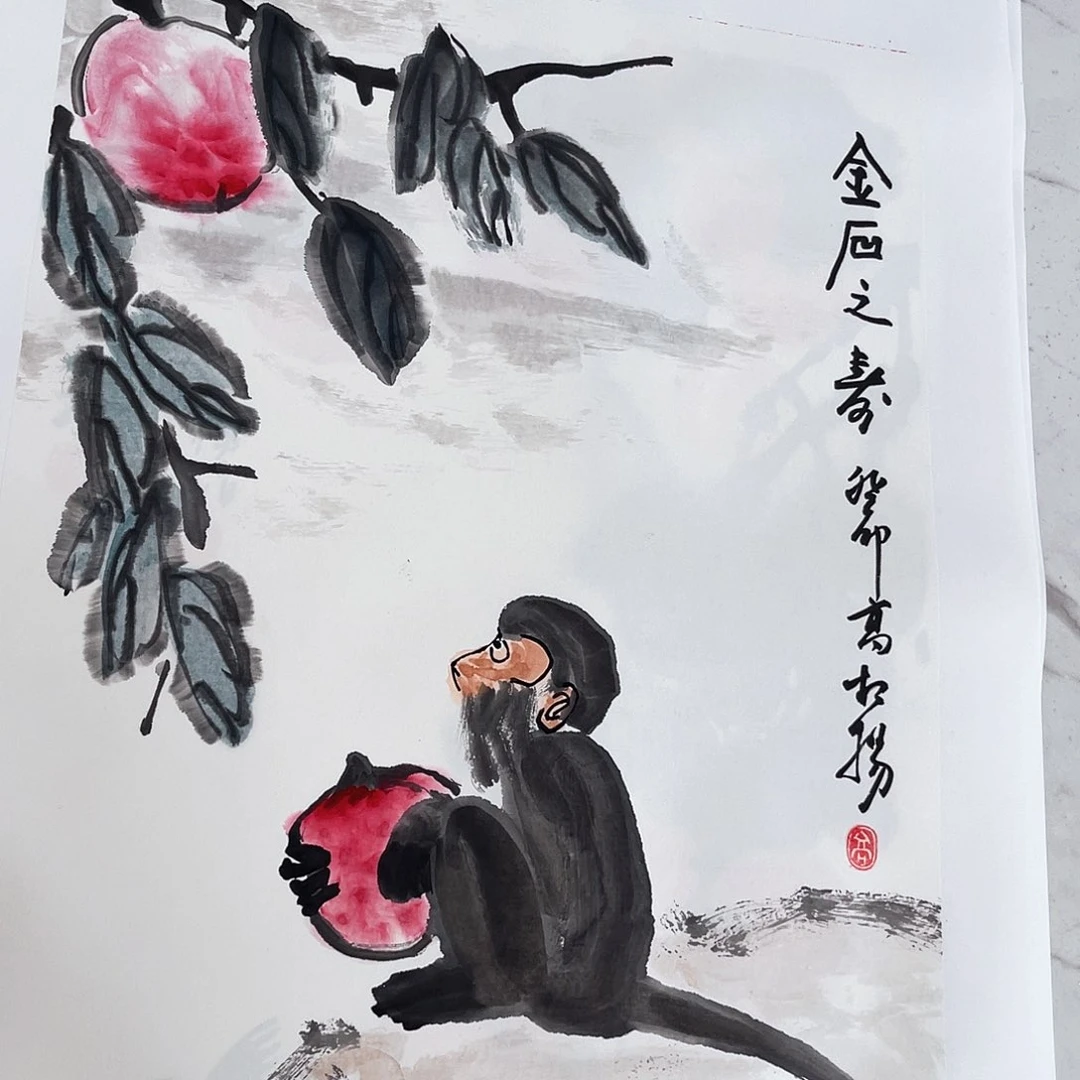 金石之寿 癸卯高松扬